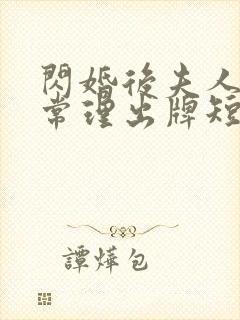 閃婚後夫人
常理出牌短
譚燁包